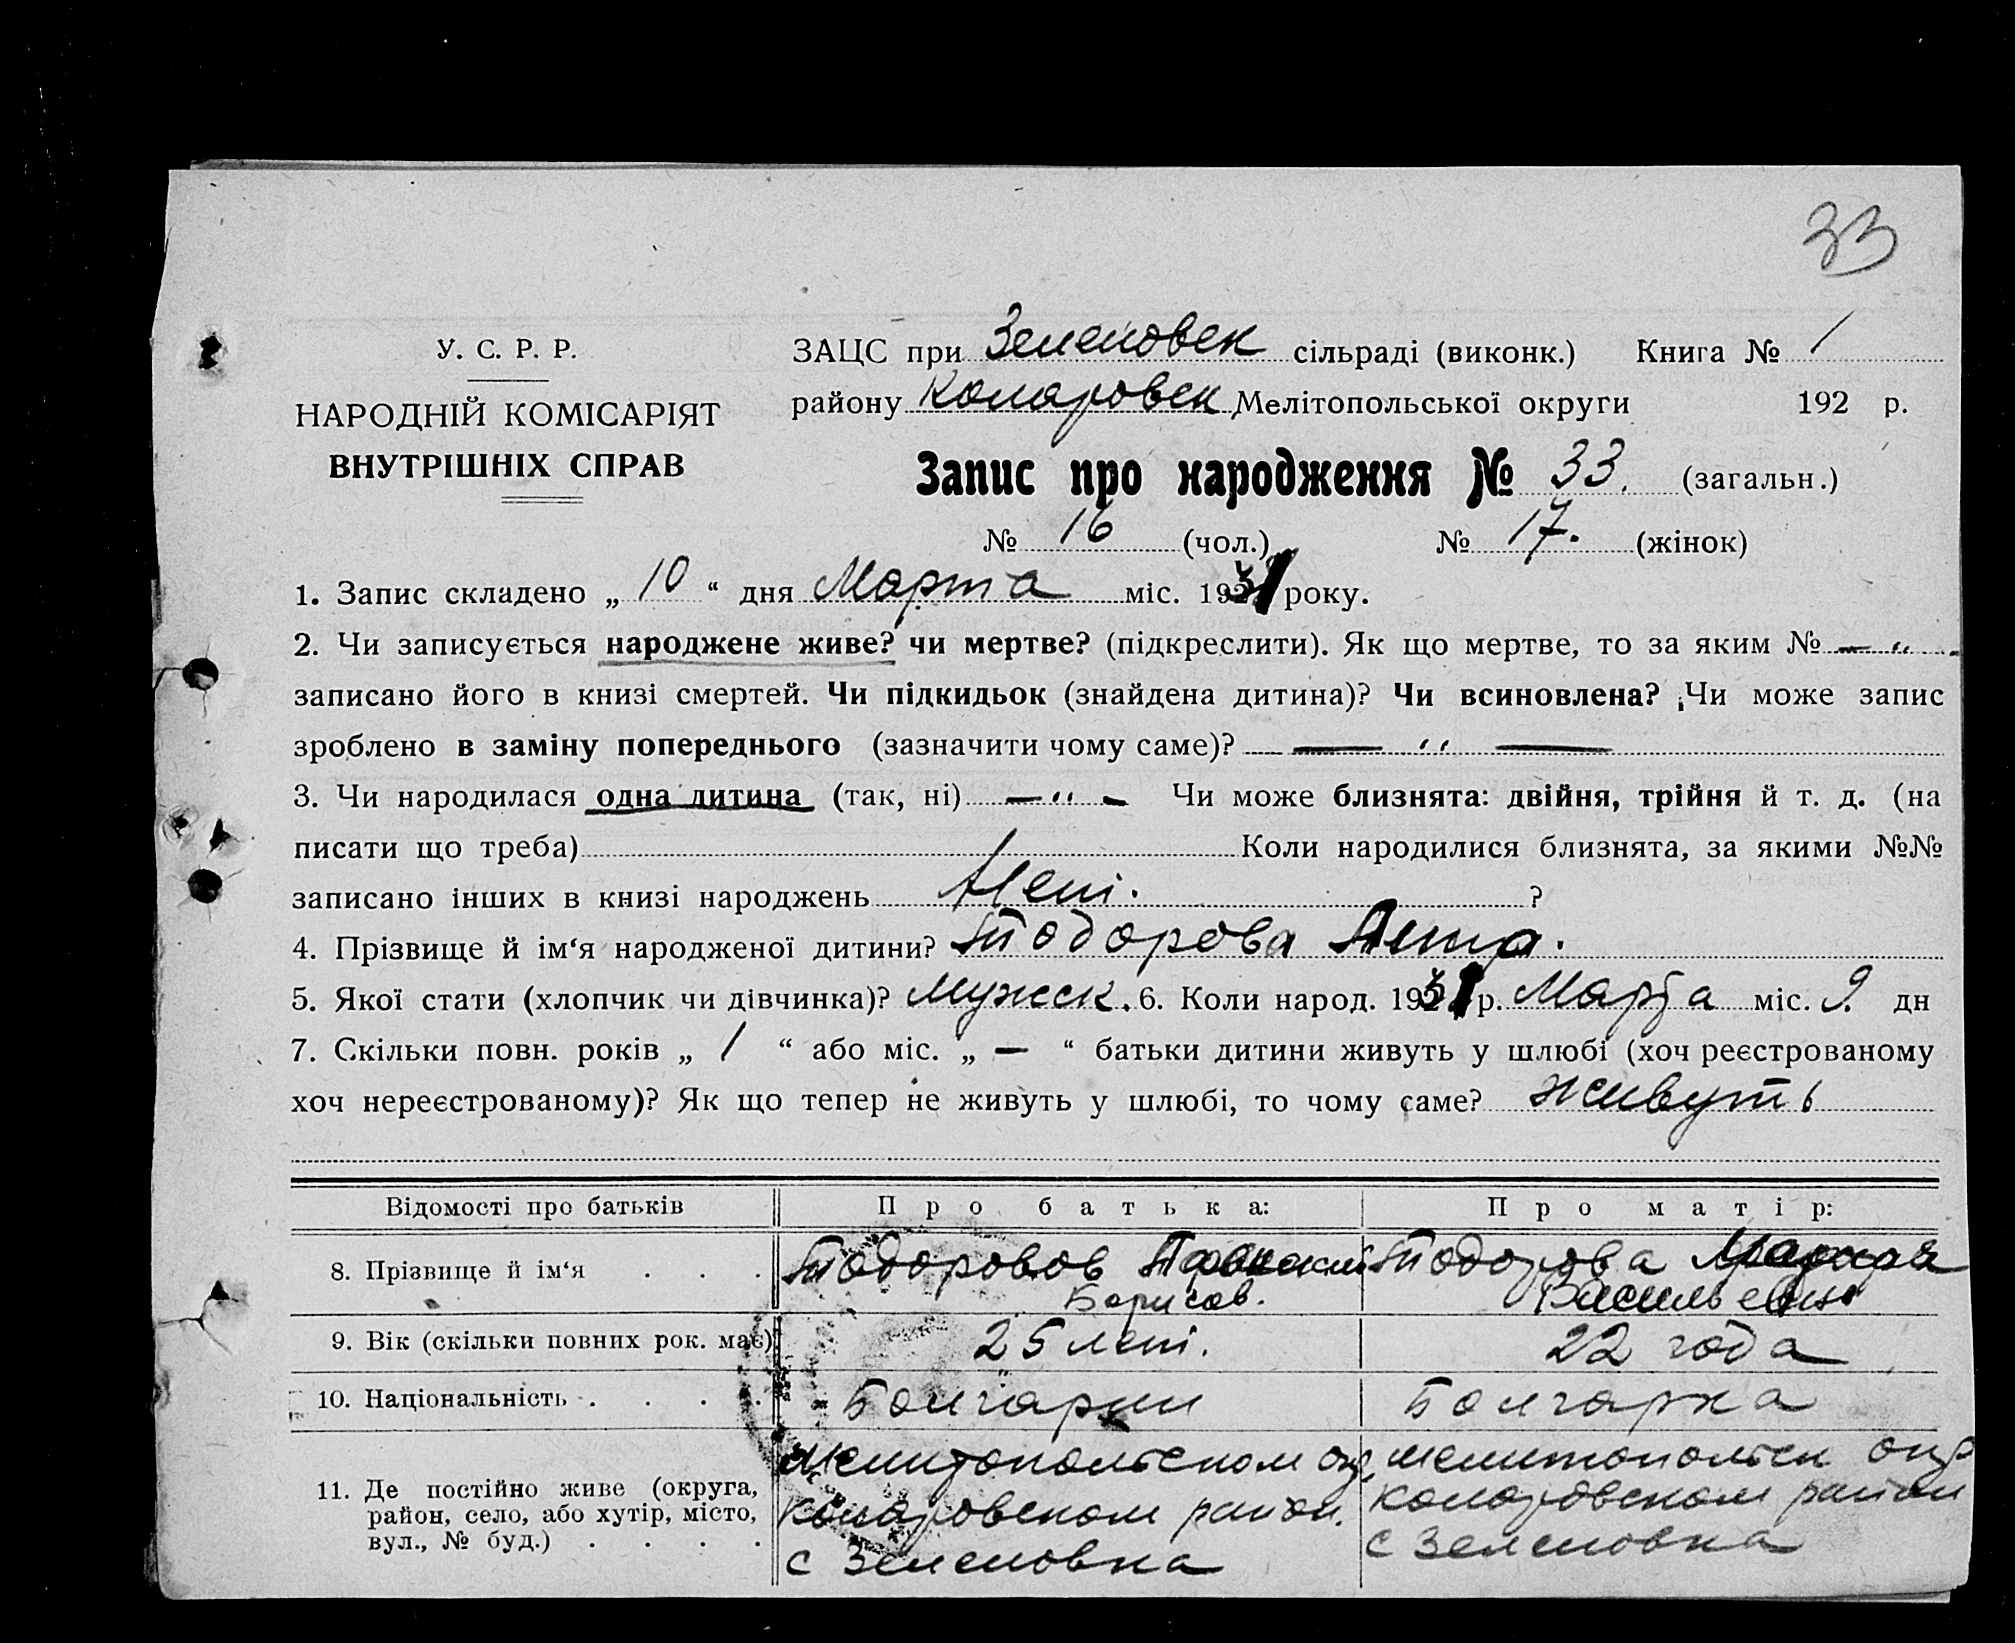 33
У. С. Р. Р.
НАРОДНІЙ КОМІСАРІЯТ
ВНУТРІШНІХ СПРАВ
ЗАЦС при Зеленовск сільраді (виконк.) Книга № 1
району Коларовск Мелітопольської округи 192 р.
Запис про народження № 33. (загальн.)
№ 16 (чол.) № 17. (жінок)
1. Запис складено „ 10 “ дня Марта міс. 1931 року.
2. Чи записується народжене живе? чи мертве? (підкреслити). Як що мертве, то за яким № — „ —
записано його в книзі смертей. Чи підкидьок (знайдена дитина)? Чи всиновлена? Чи може запис
зроблено в заміну попереднього (зазначити чому саме)? — „ —
3. Чи народилася одна дитина (так, ні) — „ — Чи може близнята: двійня, трійня й т. д. (на
писати що треба) Коли народилися близнята, за якими №№
записано інших в книзі народжень Нет. ?
4. Прізвище й ім‘я народженої дитини? Тодорова
5. Якої стати (хлопчик чи дівчинка)? Мужск. 6. Коли народ. 1931 р. Марта міс. 9. дн
7. Скільки повн. років „ 1 “ або міс. „ — “ батьки дитини живуть у шлюбі (хоч реєстрованому
хоч нереєстрованому)? Як що тепер не живуть у шлюбі, то чому саме? живуть
Відомості про батьків Про батька: Про матір:
8. Прізвище й ім‘я . . . Тодорова
Борисов. Васильевна
9. Вік (скільки повних рок. має) 25 лет. 22 года
10. Національність . . . . Болгарин Болгарка
11. Де постійно живе (округа, район, село, або хутір, місто, вул., № буд.) . . . .
Мелитопольском окр. Мелитопольск окр
Коларовском район. Коларовском район
с Зеленовка с Зеленовка